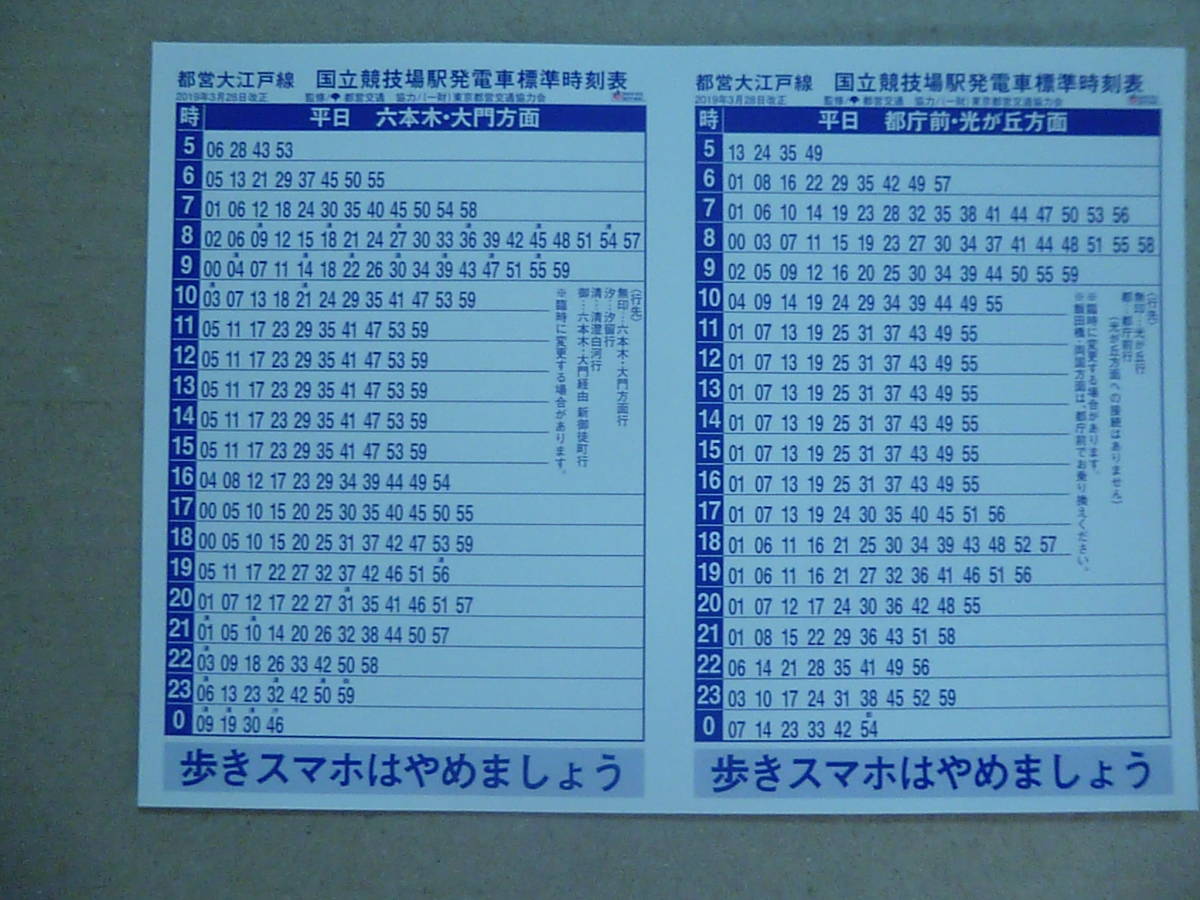 都営大江戸線 国立競技場駅発電車標準時刻表
2019年3月28日改正 監修/都営交通 協力/(一財)東京都営交通協力会
時 平日 六本木・大門方面
5 06 28 43 53
6 05 13 21 29 37 45 50 55
7 01 06 12 18 24 30 35 40 45 50 54 58
8 02 06 09 12 15 18 21 24 27 30 33 36 39 42 45 48 51 54 57
9 00 04 07 11 14 18 22 26 30 34 39 43 47 51 55 59
10 03 07 13 18 21 24 29 35 41 47 53 59
11 05 11 17 23 29 35 41 47 53 59
12 05 11 17 23 29 35 41 47 53 59
13 05 11 17 23 29 35 41 47 53 59
14 05 11 17 23 29 35 41 47 53 59
15 05 11 17 23 29 35 41 47 53 59
16 04 08 12 17 23 29 34 39 44 49 54
17 00 05 10 15 20 25 30 35 40 45 50 55
18 00 05 10 15 20 25 31 37 42 47 53 59
19 05 11 17 22 27 32 37 42 46 51 56
20 01 07 12 17 22 27 31 35 41 46 51 57
21 01 05 10 14 20 26 32 38 44 50 57
22 03 09 18 26 33 42 50 58
23 06 13 23 32 42 50 59
0 09 19 30 46
(行先)
無印…六本木・大門方面行
汐…汐留行
清…清澄白河行
御…六本木・大門経由 新御徒町行
※臨時に変更する場合があります。
歩きスマホはやめましょう
都営大江戸線 国立競技場駅発電車標準時刻表
2019年3月28日改正 監修/都営交通 協力/(一財)東京都営交通協力会
時 平日 都庁前・光が丘方面
5 13 24 35 49
6 01 08 16 22 29 35 42 49 57
7 01 06 10 14 19 23 28 32 35 38 41 44 47 50 53 56
8 00 03 07 11 15 19 23 27 30 34 37 41 44 48 51 55 58
9 02 05 09 12 16 20 25 30 34 39 44 50 55 59
10 04 09 14 19 24 29 34 39 44 49 55
11 01 07 13 19 25 31 37 43 49 55
12 01 07 13 19 25 31 37 43 49 55
13 01 07 13 19 25 31 37 43 49 55
14 01 07 13 19 25 31 37 43 49 55
15 01 07 13 19 25 31 37 43 49 55
16 01 07 13 19 25 31 37 43 49 55
17 01 07 13 19 24 30 35 40 45 51 56
18 01 06 11 16 21 25 30 34 39 43 48 52 57
19 01 06 11 16 21 27 32 36 41 46 51 56
20 01 07 12 17 24 30 36 42 48 55
21 01 08 15 22 29 36 43 51 58
22 06 14 21 28 35 41 49 56
23 03 10 17 24 31 38 45 52 59
0 07 14 23 33 42 54
(行先)
無印…光が丘行
都…都庁前行
(光が丘方面への接続はありません)
※臨時に変更する場合があります。
※飯田橋・両国方面は、都庁前でお乗り換えください。
歩きスマホはやめましょう